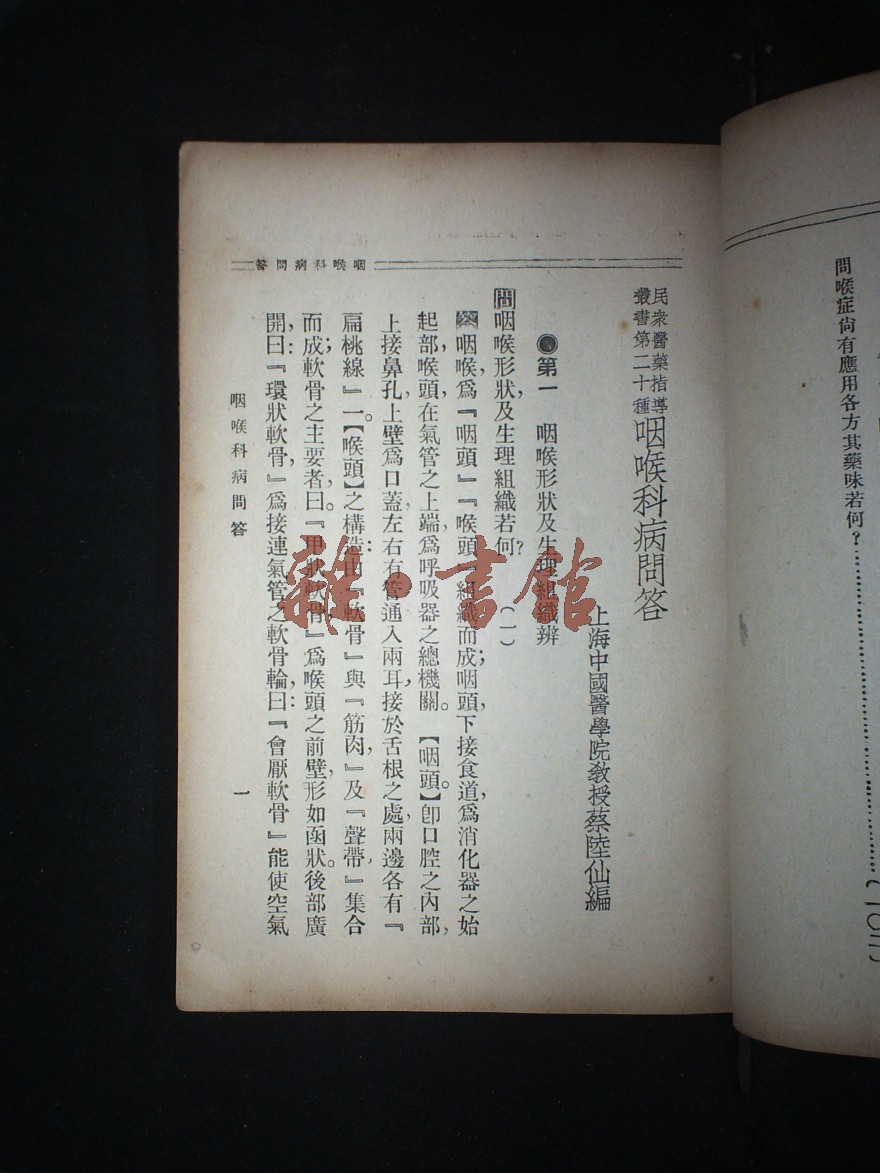 問喉症尙有應用各方其藥味若何?……………………(一〇三)
咽喉科病問答
民衆醫藥指導
叢書第二十種
咽喉科病問答
上海中國醫學院敎授蔡陸仙編
第一 咽喉形狀及生理組織辨
問咽喉形狀,及生理組織若何?(一)
答咽喉,爲『咽頭』『喉頭』組織而成;咽頭,下接食道,爲消化器之始
起部,喉頭,在氣管之上端,爲呼吸器之總機關。【咽頭】卽口腔之內部,
上接鼻孔,上壁爲口蓋,左右有管,通入兩耳,接於舌根之處,兩邊各有『
扁桃線』一。【喉頭】之構造:由『軟骨』與『筋肉,』及『聲帶,』集合
而成;軟骨之主要者,曰:『甲狀軟骨,』爲喉頭之前壁,形如函狀。後部廣
開,曰:『環狀軟骨,』爲接連氣管之軟骨輪,曰:『會厭軟骨』能使空氣
咽喉科病問答
一
雜·書館